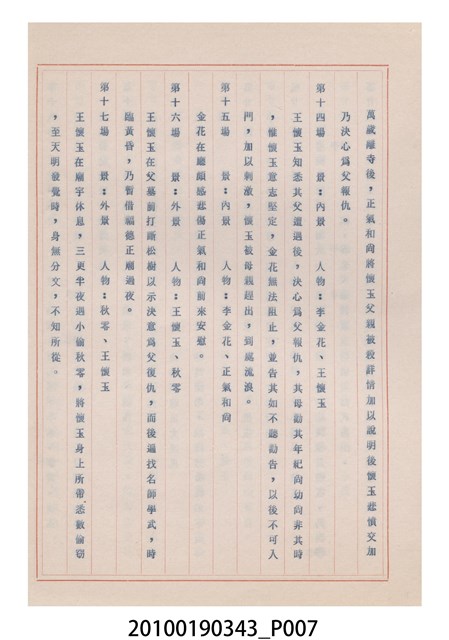 萬歲離寺後，正氣和尚將懷玉父親被殺詳情加以說明後懷玉悲憤交加
乃決心為父報仇。
第十四場　景：內景　人物：李金花、王懷玉
王懷玉知悉其父遭遇後，決心為父報仇，其母勸其年紀尚幼尚非其時
，惟懷玉意志堅定，金花無法阻止，並告其如不聽勸告，以後不可入
門，加以刺激，懷玉被母親趕出，到處流浪。
第十五場　景：內景　人物：李金花、正氣和尚
金花在廳頭感悲傷正氣和尚前來安慰。
第十六場　景：外景　人物：王懷玉、秋零
王懷玉在父墓前打斷松樹以示決意為父復仇，而後遍找名師學武，時
臨黃昏，乃暫借福德正廟過夜。
第十七場　景：外景　人物：秋零、王懷玉
王懷玉在廟宇休息，三更半夜遇小偷秋零，將懷玉身上所帶悉數偷竊
，至天明發覺時，身無分文，不知所從。
20100190343_P007